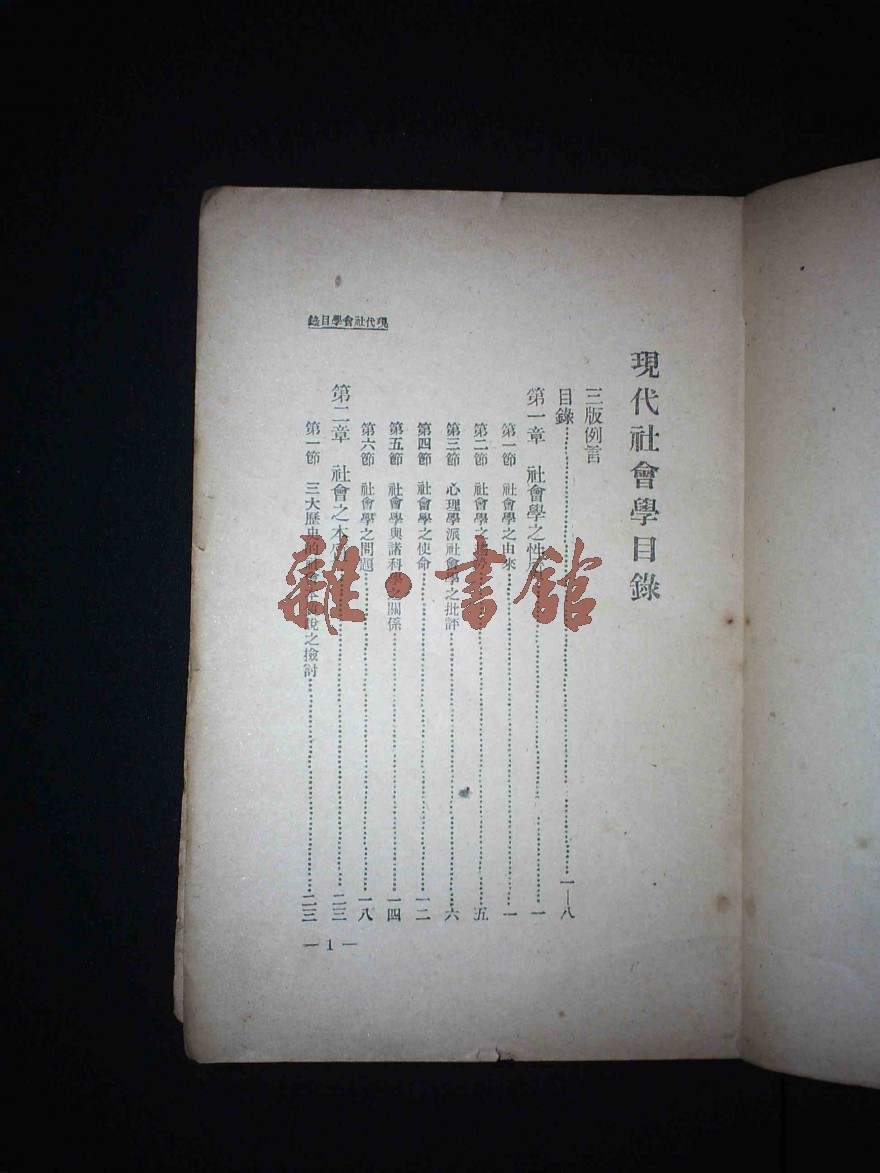 現代社會學目錄
三版例言
目錄……一—八
第一章 社會學之性……一
第一節 社會學之由來……一
第二節 社會學之……五
第三節 心理學派社會學之批評……六
第四節 社會學之使命……一二
第五節 社會學與諸科學之關係……一四
第六節 社會學之問題……一八
第二章 社會之本……二三
第一節 三大歷史的社會本質說之檢討……二三
現代社會學目錄
— 1 —
雜·書館